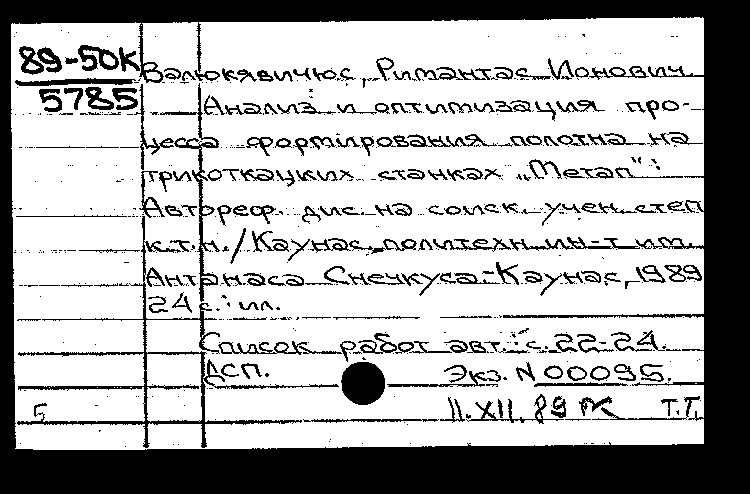 89-50К
5785
Валюкявичюс, Римантас Ионович.
Анализ и оптимизация про-
цесса формирования полотна на
трикоткацких станках „Метап“:
Автореф. дис. на соиск. учен. степ
к.т.н./Каунас. политехн. ин-т им.
Антанаса Снечкуса.-Каунас, 1989
24 с.: ил.
Список работ авт.: с. 22-24.
ДСП.
Экз. N 00095.
5
11.XII.89
Т.Т.